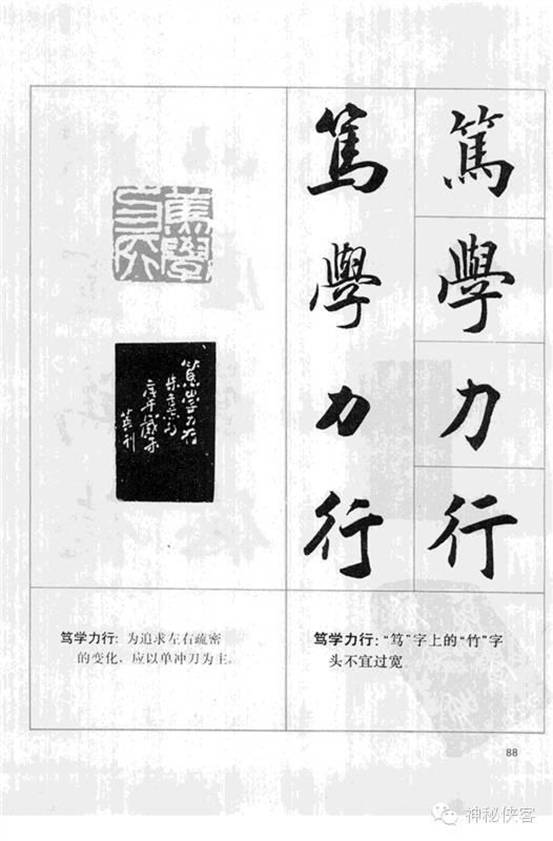 篤
學
力
行
篤
學
力
行
篤學
力行
笃学力行：为追求左右疏密
的变化，应以单冲刀为主。
笃学力行：“笃”字上的“竹”字
头不宜过宽
88
神秘侠客